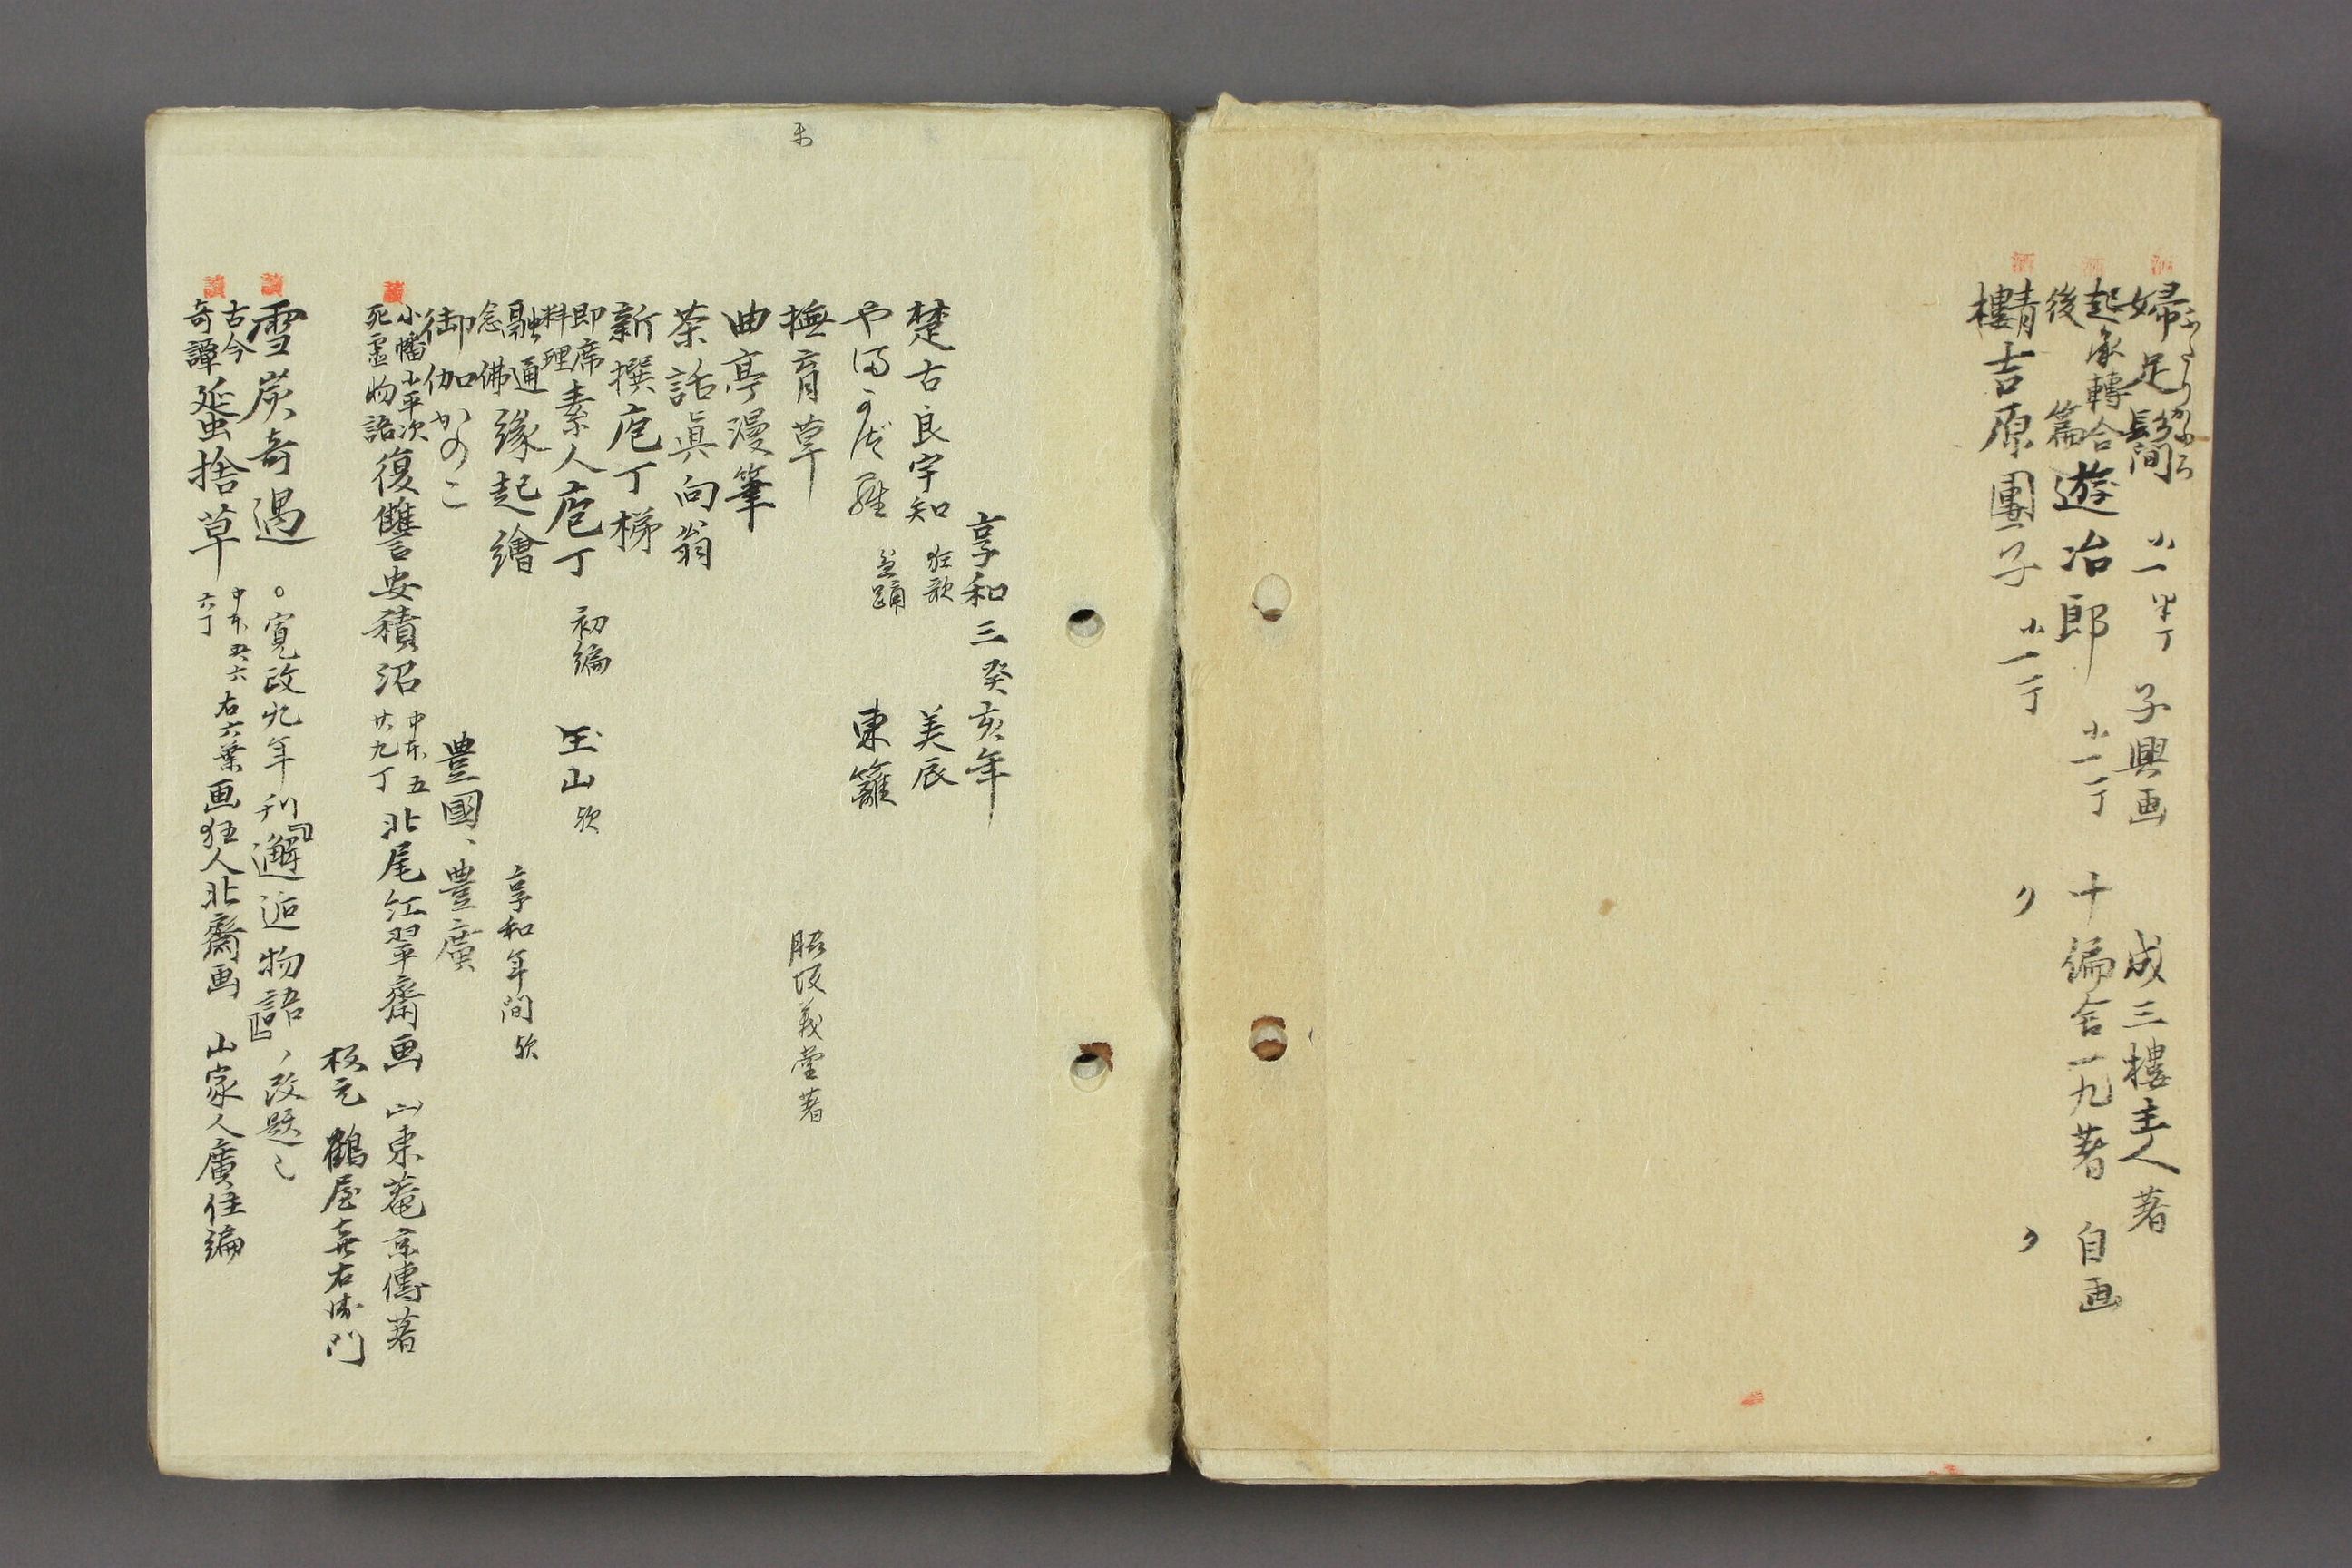 婦足髷 小一 半丁 子興画 成三樓主人著
起承轉合
後篇 遊冶郎 小一丁 十偏舎一九著 自画
青樓 吉原團子 小一丁 〃 〃
享和三癸亥年
楚古良宇知 狂歌 美辰
盆踊 東籬
撫育草 脇坂義堂著
曲亭漫筆
茶話眞向翁
新撰庖丁梯
即席
料理 素人庖丁 初編 玉山欤
融通
念佛 縁起繪 享和年間欤
御伽かのこ 豊國、豊廣
小幡小平次
死霊物語 復讐安積沼 中本五
廿九丁 北尾紅翠齋画 山東菴京傳著
板元 鶴屋喜右衛門
雪炭奇遇 。寛政九年刊「邂逅物語」ノ改題
古今
奇譚 蜑捨草 中本 六
六丁 右六葉画狂人北齋画 山家人廣住編